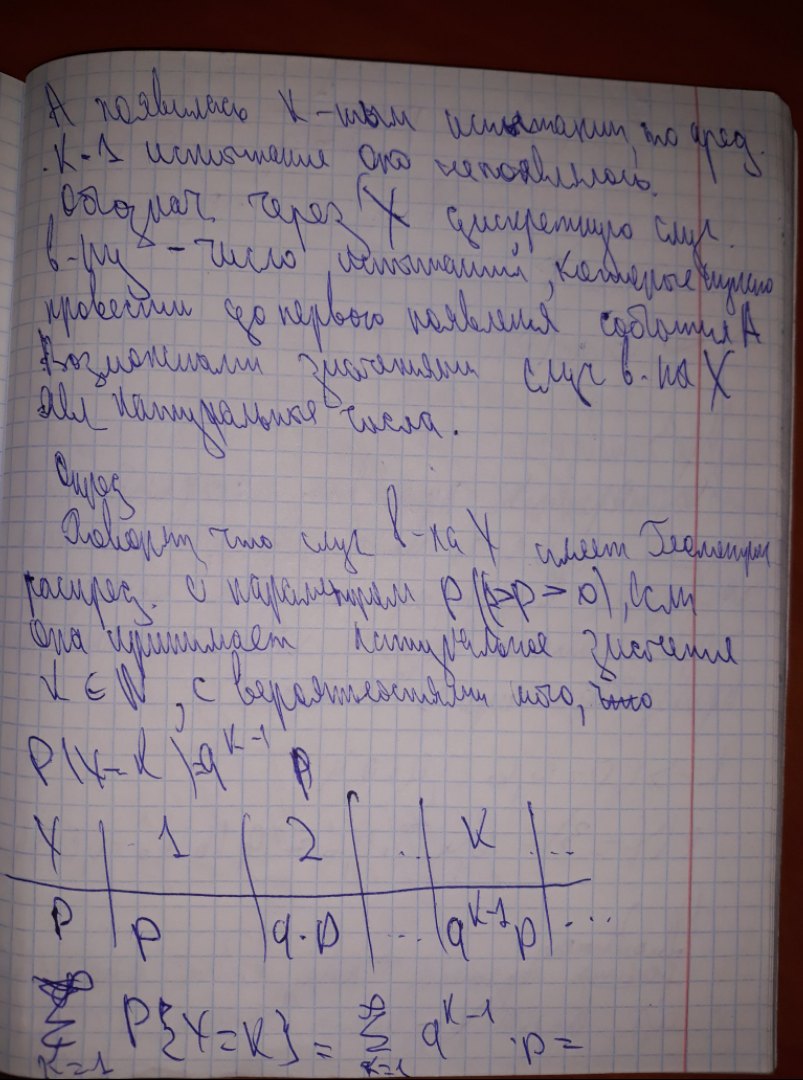 А появилась К-тым испытании, то пред.
К-1 испытание оно непоявлялось.
Обознач. через X дискретную случ.
в-ну - число испытаний, которые нужно
провести до первого появления события А
Возможными значениями случ в-ны X
явл натуральные числа.
Опред
Говорят что случ в-на X имеет Геометрич
распред. с параметром P(1>P>0), если
она принимает натуральное значения
K ∈ N, с вероятностями того, что
P(X=K)=q^{K-1} p
X | 1 | 2 | ... | K | ...
P | p | q·p | ... | q^{K-1}p | ...
∞∑K=1 P{X=K} = ∞∑K=1 q^{K-1}·p =